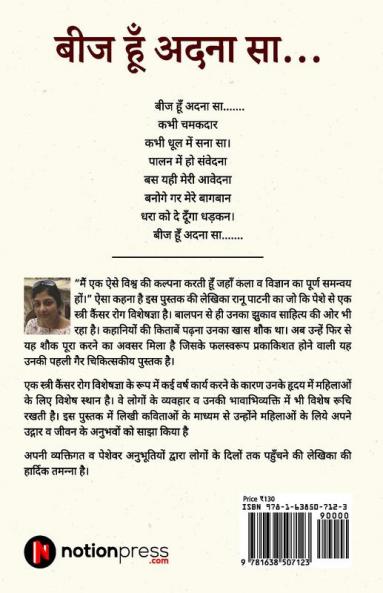 बीज हूँ अदना सा...
बीज हूँ अदना सा.......
कभी चमकदार
कभी धूल में सना सा।
पालन में हो संवेदना
बस यही मेरी आवेदना
बनोगे गर मेरे बागबान
धरा को दे दूँगा धड़कन।
बीज हूँ अदना सा.......
“मैं एक ऐसे विश्व की कल्पना करती हूँ जहाँ कला व विज्ञान का पूर्ण समन्वय
हों।” ऐसा कहना है इस पुस्तक की लेखिका रानू पाटनी का जो कि पेशे से एक
स्त्री कैंसर रोग विशेषज्ञा है। बालपन से ही उनका झुकाव साहित्य की ओर भी
रहा है। कहानियों की किताबें पढ़ना उनका खास शौक था। अब उन्हें फिर से
यह शौक पूरा करने का अवसर मिला है जिसके फलस्वरूप प्रकाशित होने वाली यह
उनकी पहली गैर चिकित्सकीय पुस्तक है।
एक स्त्री कैंसर रोग विशेषज्ञा के रूप में कई वर्ष कार्य करने के कारण उनके हृदय में महिलाओं
के लिए विशेष स्थान है। वे लोगों के व्यवहार व उनकी भावाभिव्यक्ति में भी विशेष रूचि
रखती है। इस पुस्तक में लिखी कविताओं के माध्यम से उन्होंने महिलाओं के लिये अपने
उद्गार व जीवन के अनुभवों को साझा किया है
अपनी व्यक्तिगत व पेशेवर अनुभूतियों द्वारा लोगों के दिलों तक पहुँचने की लेखिका की
हार्दिक तमन्ना है।
Price ₹130
ISBN 978-1-63850-712-3
90000
9 781638 507123
N notionpress
.com